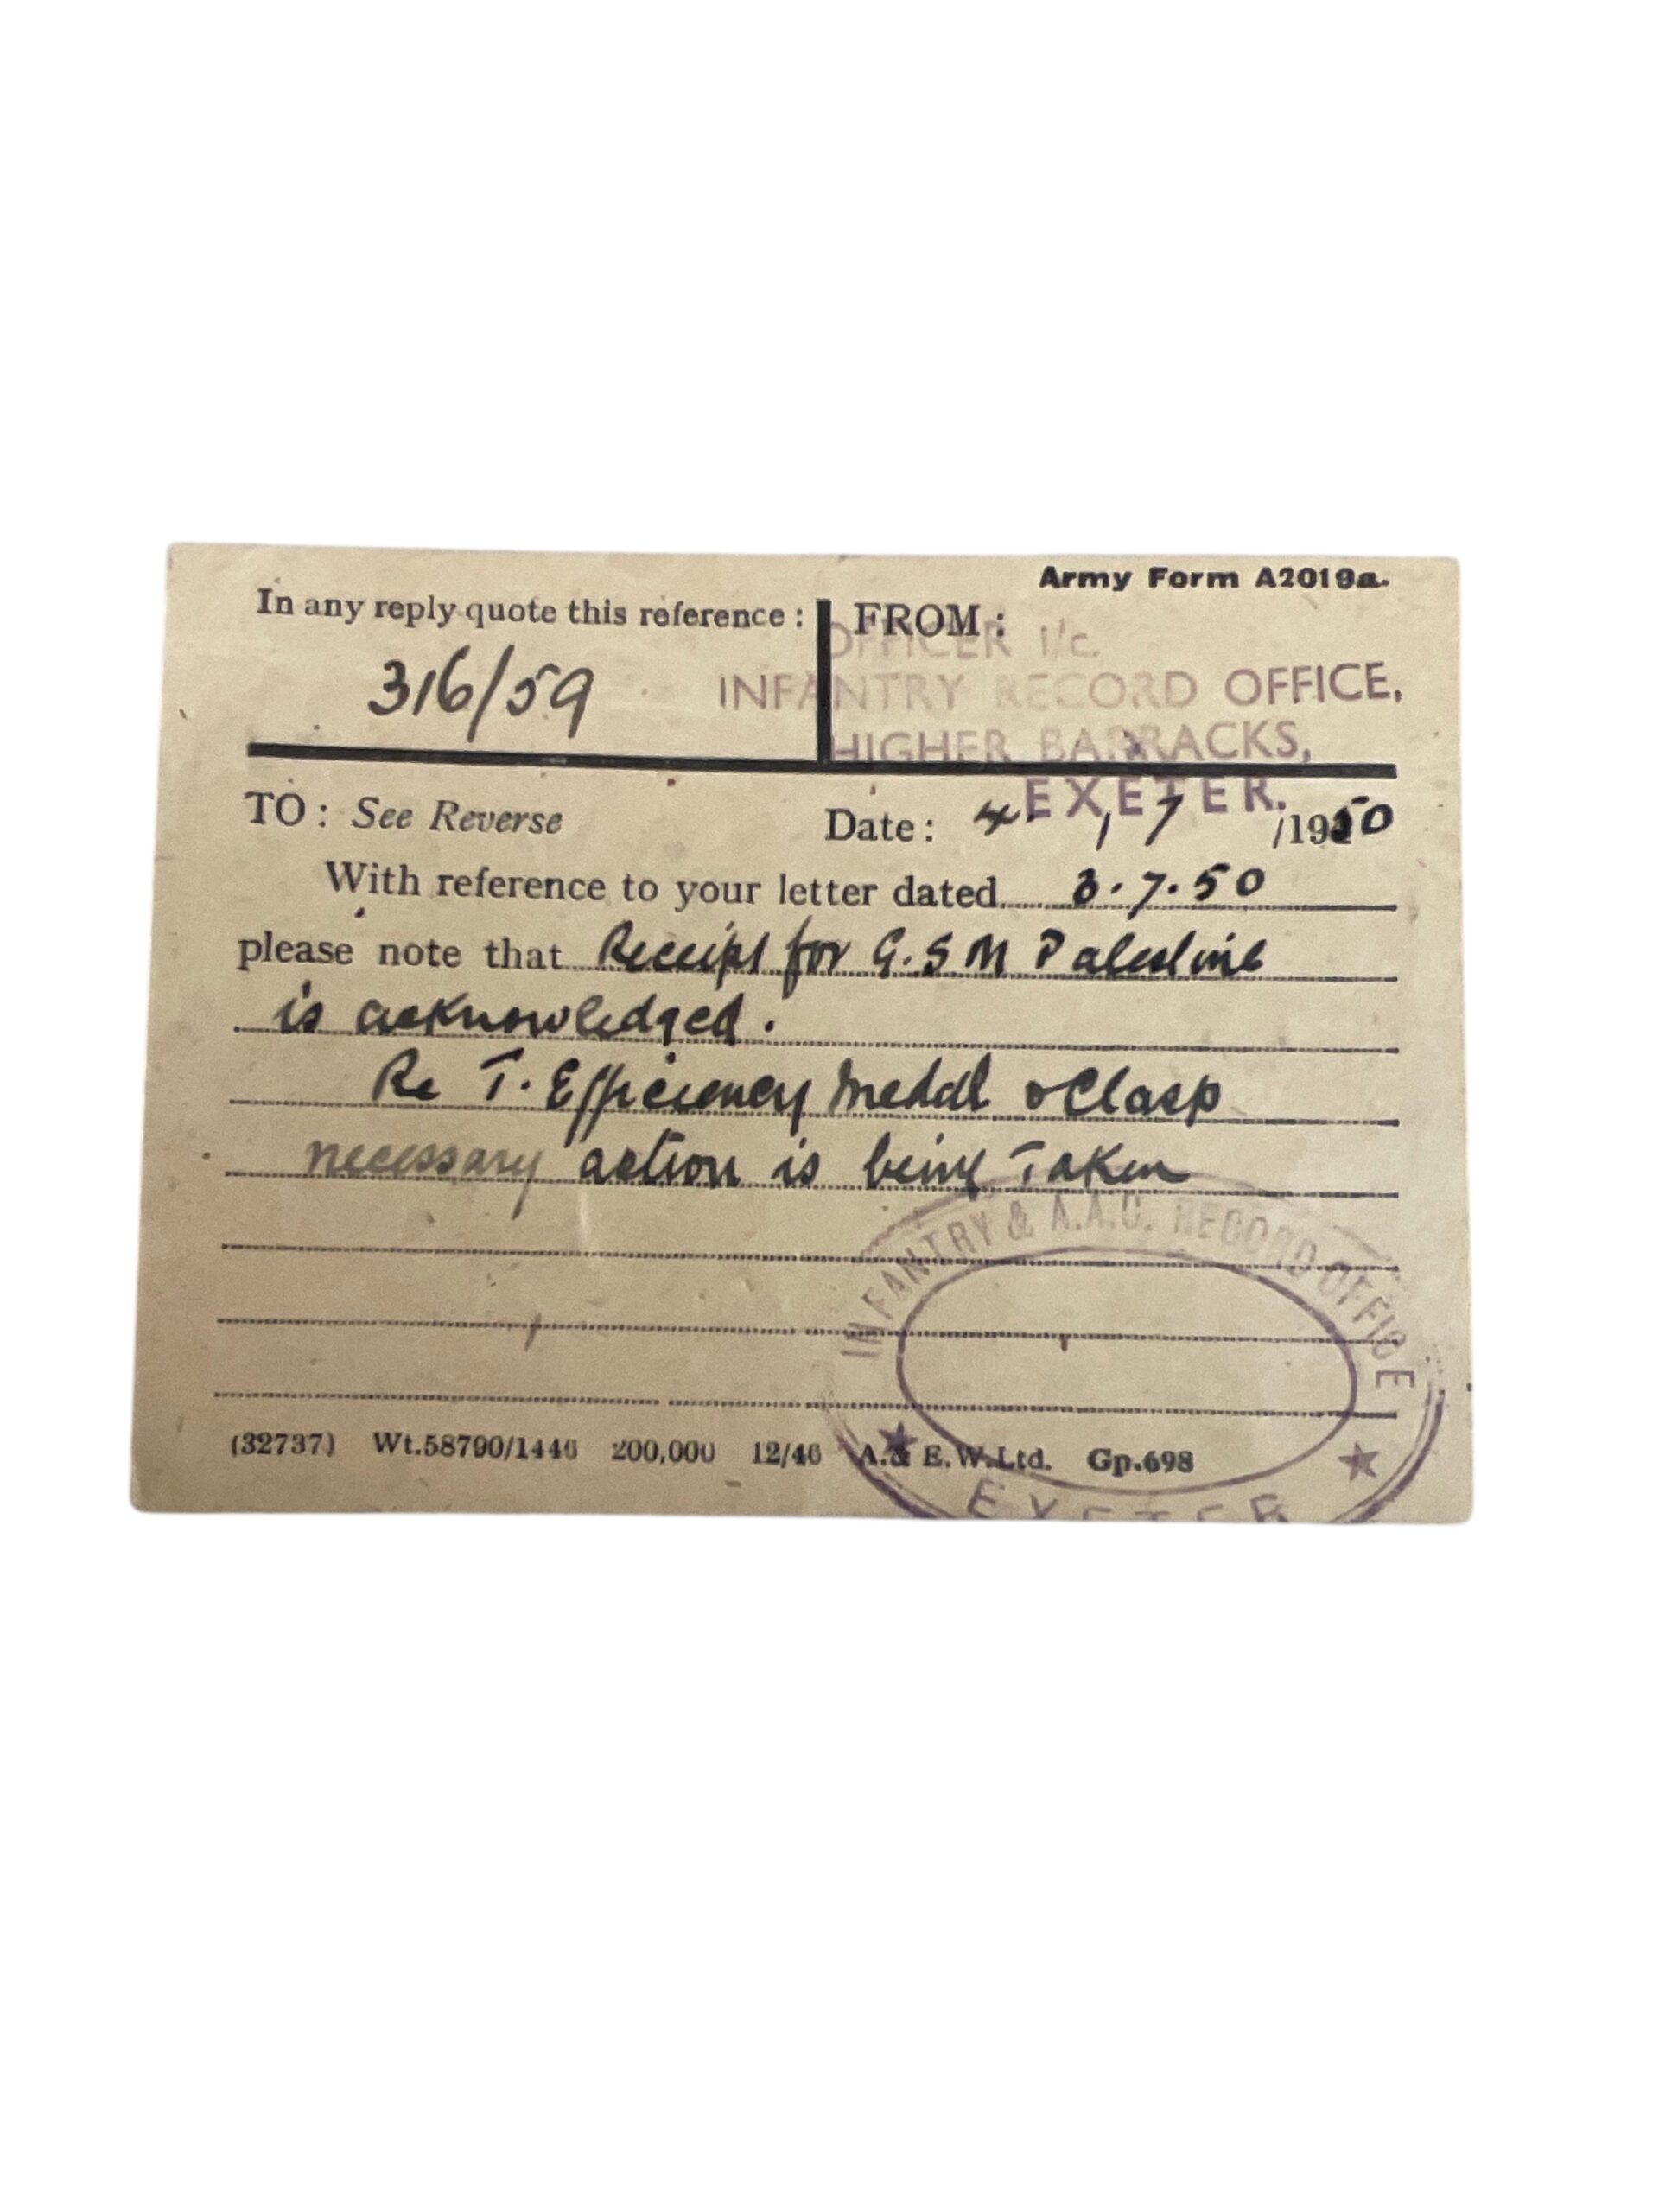 Army Form A2019a.
In any reply quote this reference :
316/59
FROM :
OFFICER i/c.
INFANTRY RECORD OFFICE,
HIGHER BARRACKS,
EXETER.
TO : See Reverse
Date : 4 / 7 /1950
With reference to your letter dated 3.7.50
please note that Receipt for G.S M Palestine
is acknowledged.
Re T. Efficiency Medal & Clasp
necessary action is being Taken
INFANTRY & A.A.C. RECORD OFFICE
EXETER
(32737) Wt.58790/1446 200,000 12/46 A.& E.W.Ltd. Gp.698